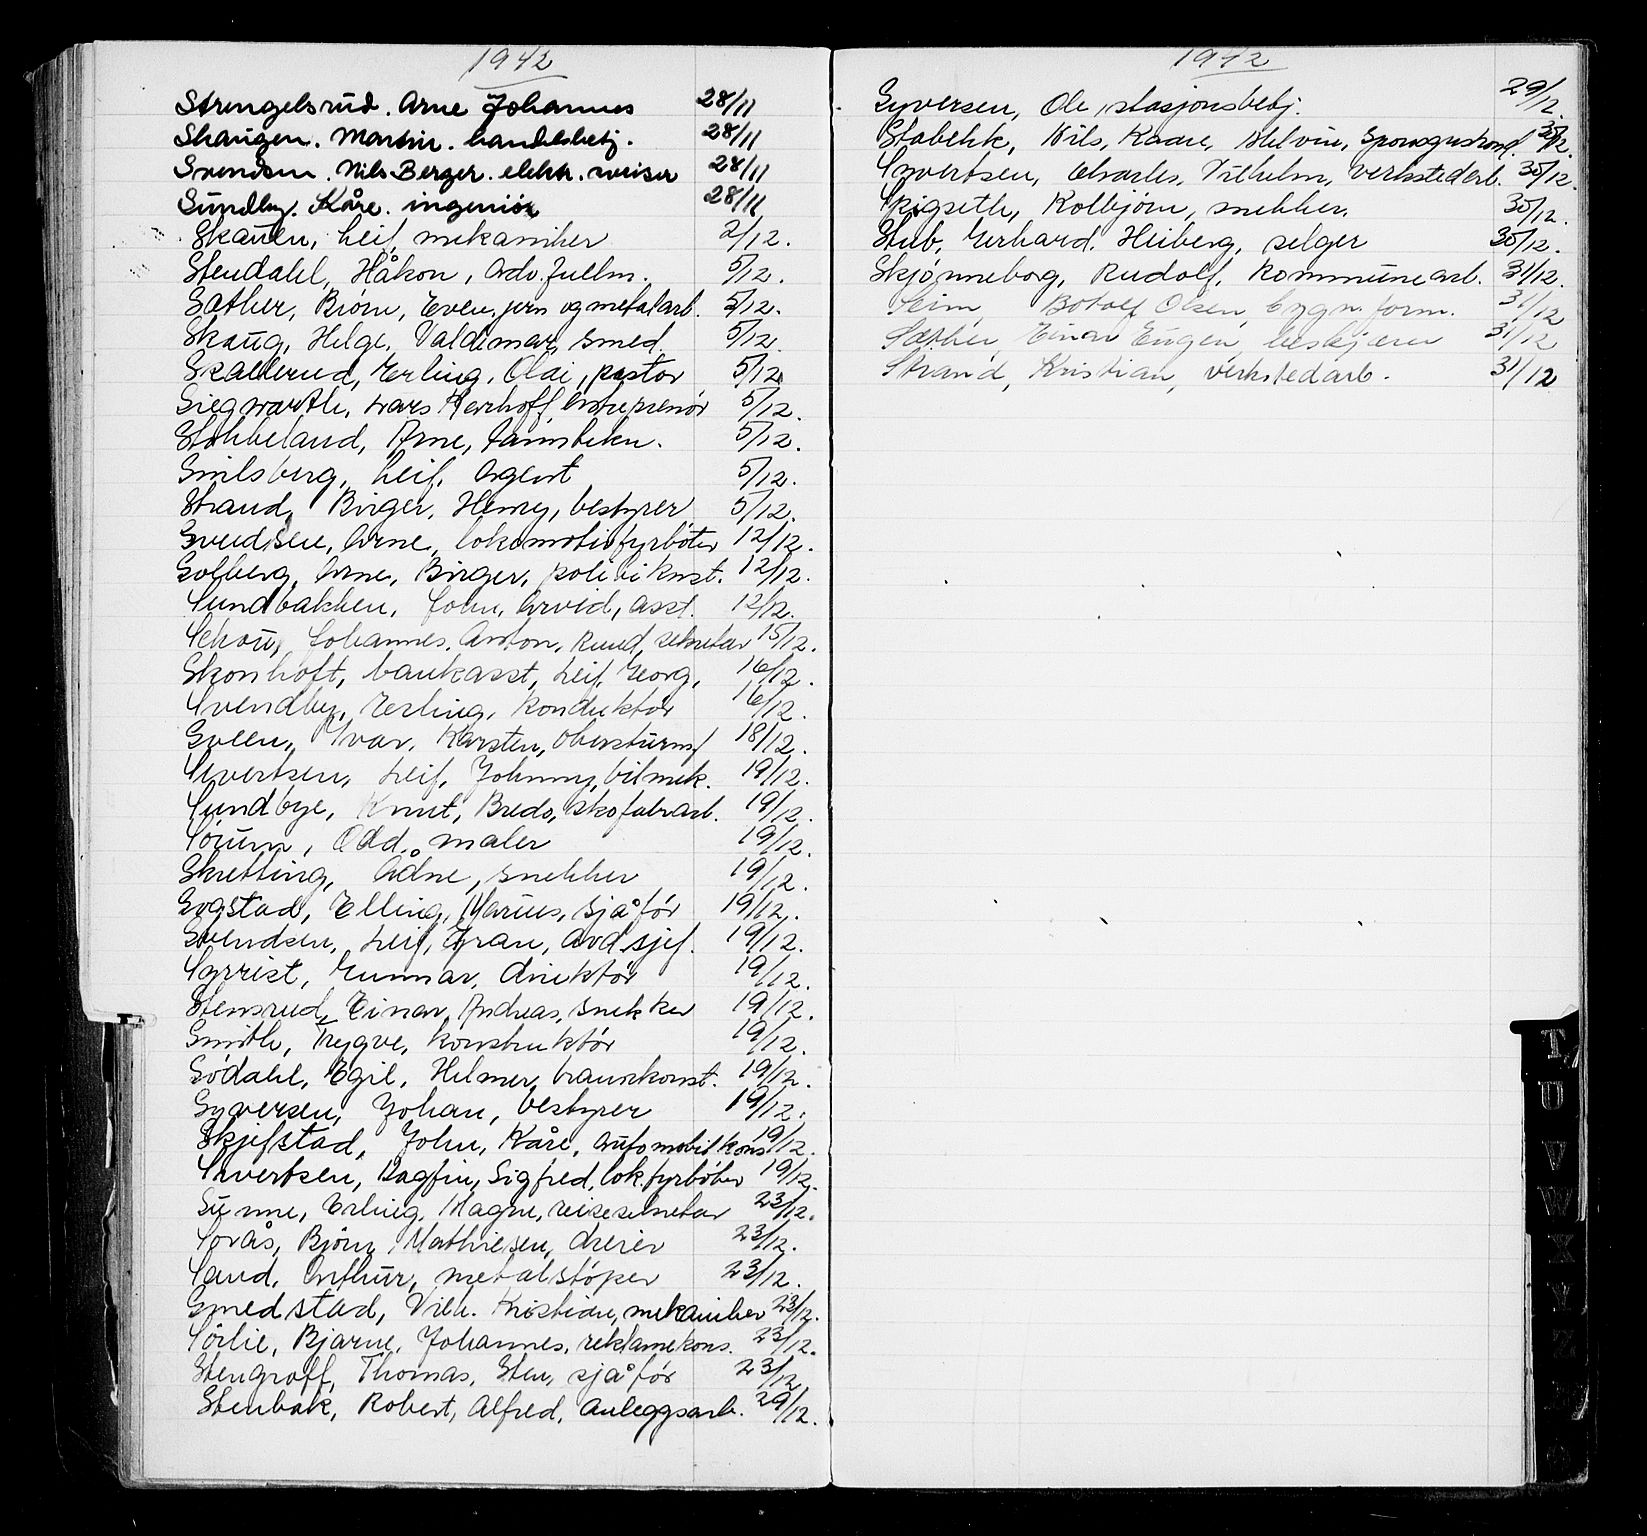 1942
Strengelsrud. Arne Johannes 28/11
Skaugen. Martin. handelsbetj. 28/11
Svendsen. Nils Berger. elektr. 28/11
Sundby. Kåre. ingeniör 28/11
Skauen, Leif, mekaniker 2/12.
Stendahl, Håkon, Adv. fullm. 5/12.
Sæther, Biörn, Even. jern og metalarb. 5/12.
Skaug, Helge, Valdemar, smed. 5/12.
Skallerud, Erling, Olai, pastor 5/12
Siegwarth, Lars Kerhoff, entreprenör 5/12.
Stokkeland, Arne, 5/12.
Smilsberg, Leif, Agent 5/12.
Strand, Birger, Henry, bestyrer 5/12.
Svendsen, Arne, lokomotivfyrböter 12/12.
Solberg, Arne, Birger, politikonst. 12/12.
Sundbakken, John, Arvid, asst. 12/12.
Schou, Johannes. Anton, Ruud, sekretær 15/12.
Skonhoft, bankasst, Leif, Georg, 16/12.
Svendby, Erling, konduktör 16/12.
Sveen, Ivar, Karsten, Obersturmf 18/12.
Sivertsen, Leif, Johnny, bilmek. 19/12.
Sundbye, Knut, Bredo, skofabrarb. 19/12.
Sörum, Odd, maler 19/12.
Skretting, Ådne, snekker 19/12.
Sogstad, Elling, Marius, sjåför 19/12.
Svendsen, Leif, Gran, Avd sjef. 19/12.
Syrrist, Gunnar, direktör 19/12.
Stensrud, Einar, Andreas, snekker 19/12.
Smith, Trygve, konstruktör 19/12.
Södahl, Egil, Helmer, brannkonst. 19/12.
Syversen, Johan, bestyrer 19/12.
Skjefstad, John, Kåre, automobilkons 19/12.
Sivertsen, Dagfin, Sigfred, lok.fyrböter 19/12.
Sunne, Erling, Magne, reisesekretær 23/12.
Sorås, Björn, Mathiesen, dreier 23/12.
Sand, Arthur, metalstöper 23/12.
Smedstad, Vilh. Kristian, mekaniker 23/12.
Sörlie, Bjarne, Johannes, reklamekons. 23/12.
Stengroff, Thomas, Sten, sjåför 23/12
Stenbak, Robert, Alfred, anleggsarb. 29/12.
1942
Syversen, Ole, stasjonsbetj. 29/12.
Stabekk, Nils, Kaare, Melvin, 30/12.
Syvertsen, Charles, Vilhelm, verkstedarb. 30/12.
Skigseth, Kolbjörn, snekker. 30/12.
Stub, Gerhard, Heiberg, selger 30/12.
Skjönneborg, Rudolf, Kommunearb. 31/12.
Seim, Botolf Olsen, bygn. form. 31/12
Sæther, Einar Eugen, 31/12
Strand, Kristian, verkstedarb. 31/12
T
U
V
W
X
Y
Z